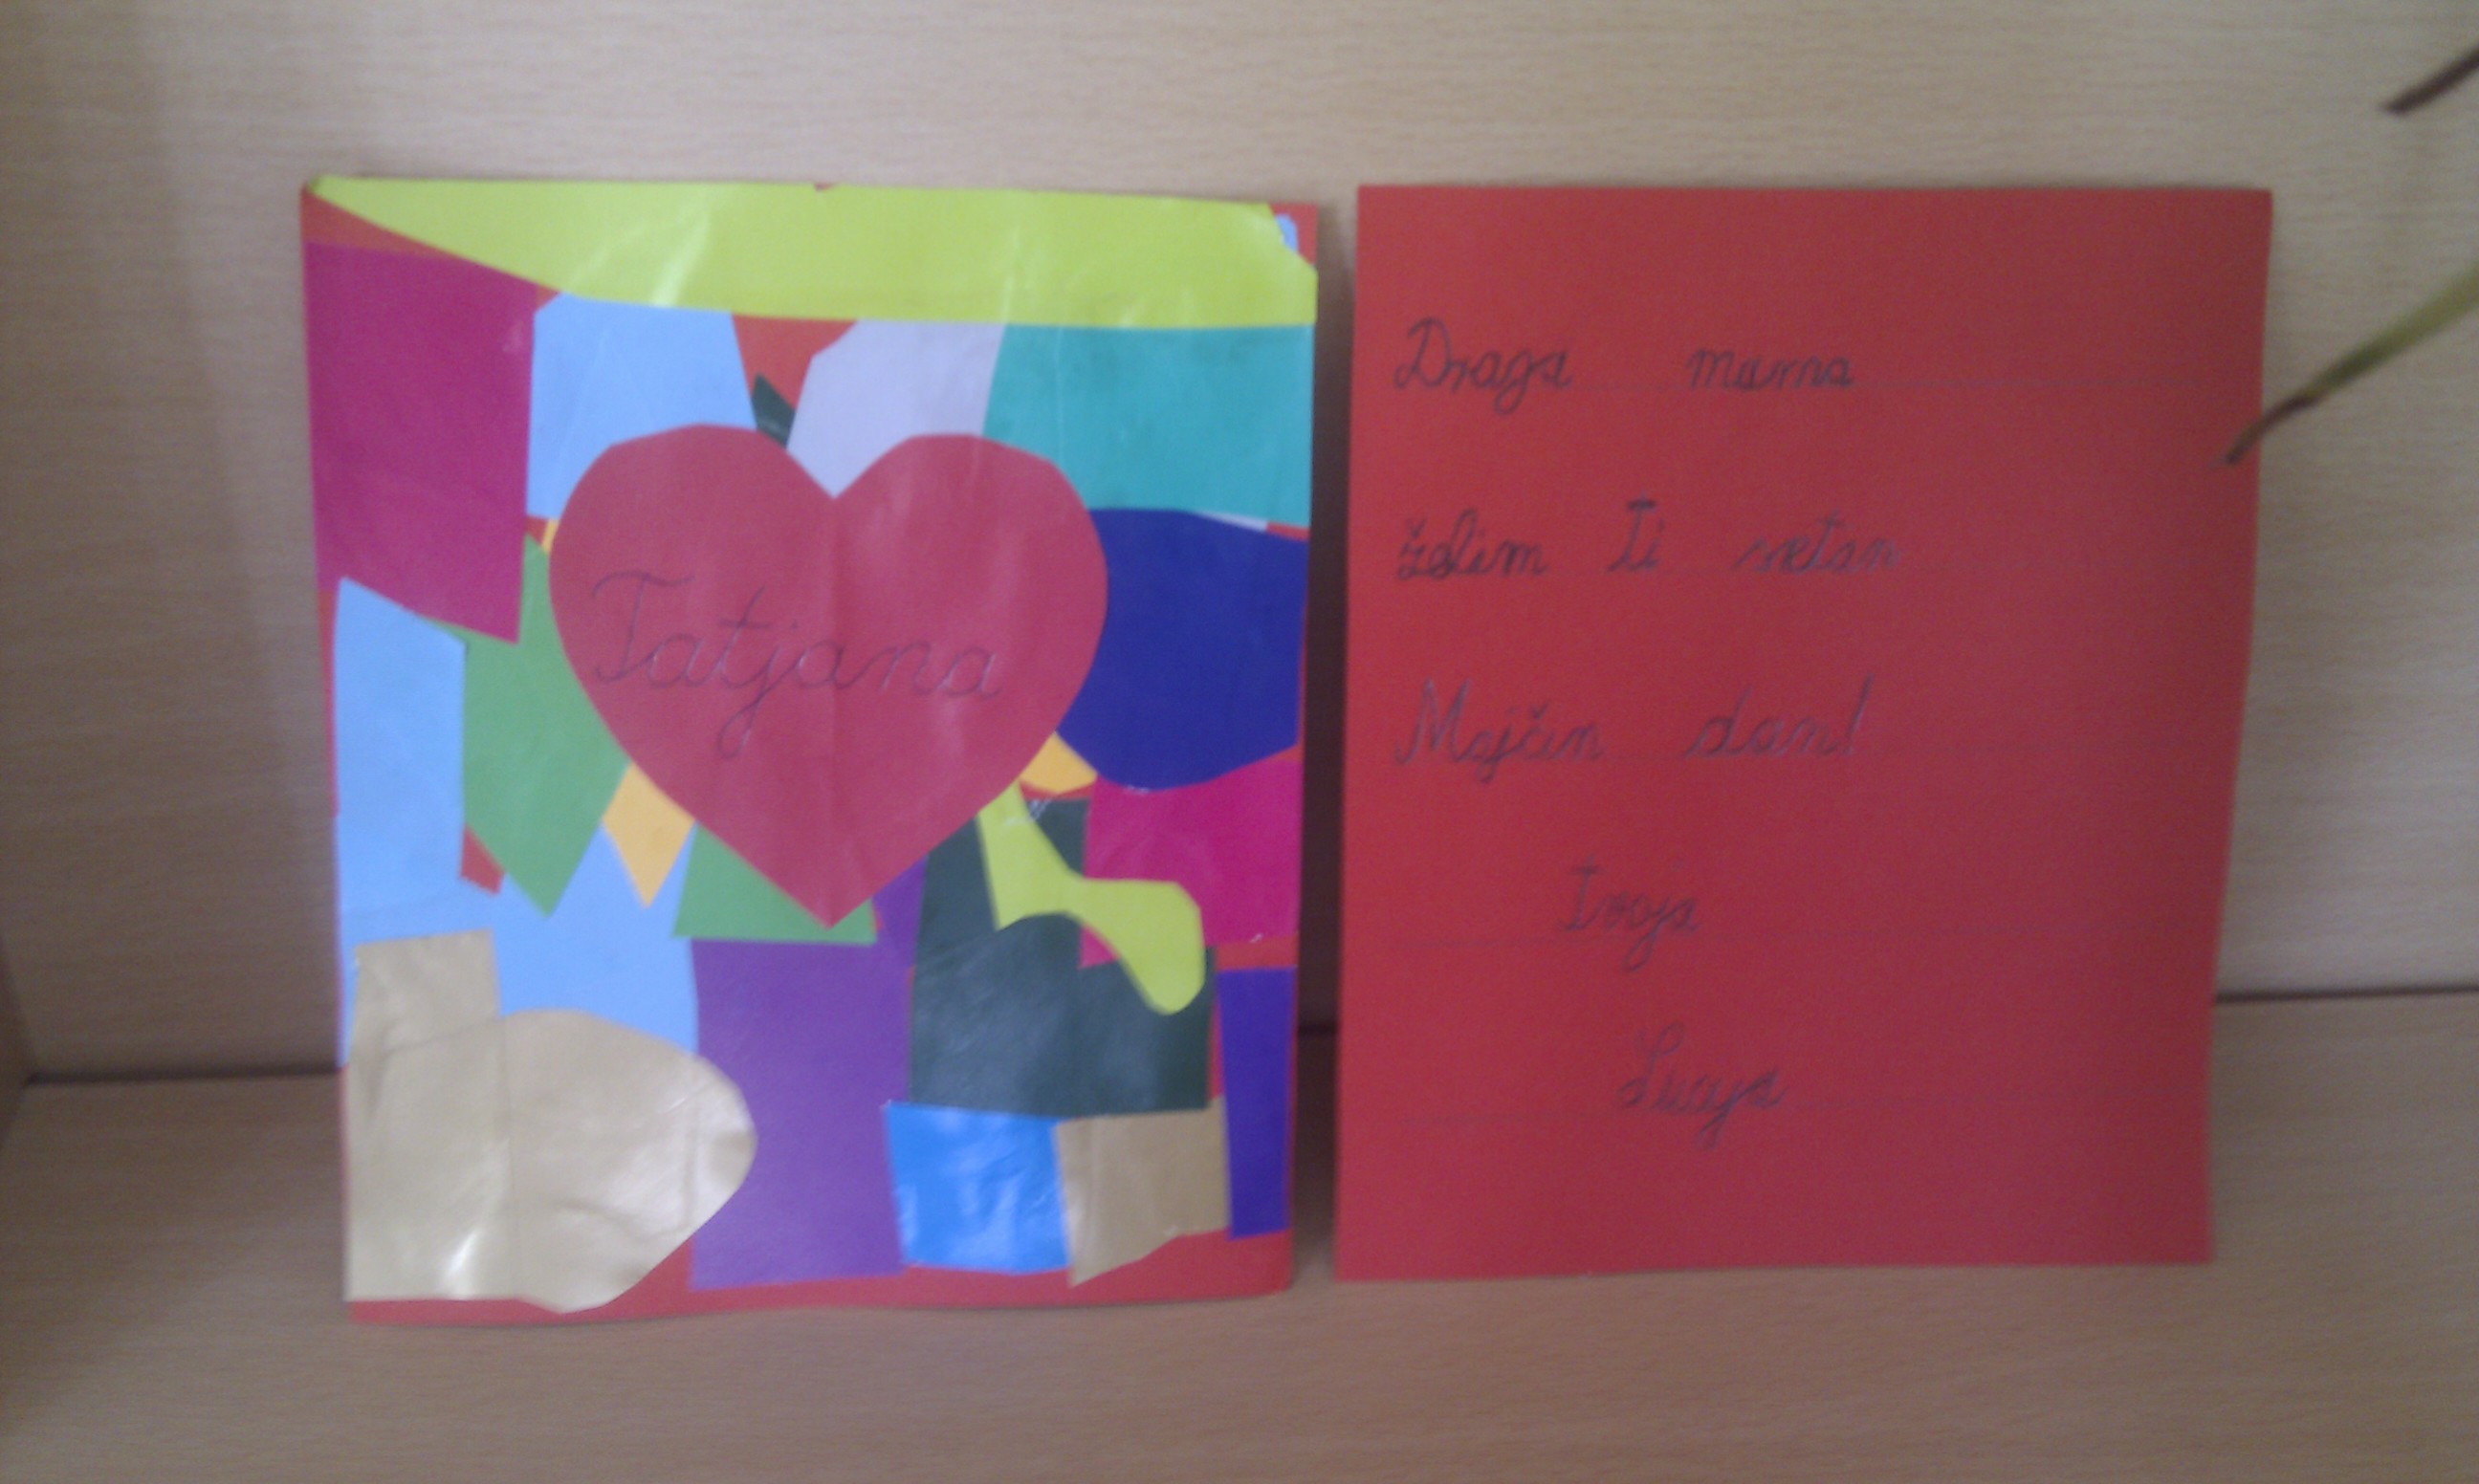 Tatjana
Draga mama
želim Ti sretan
Majčin dan!
Tvoja
Lucija